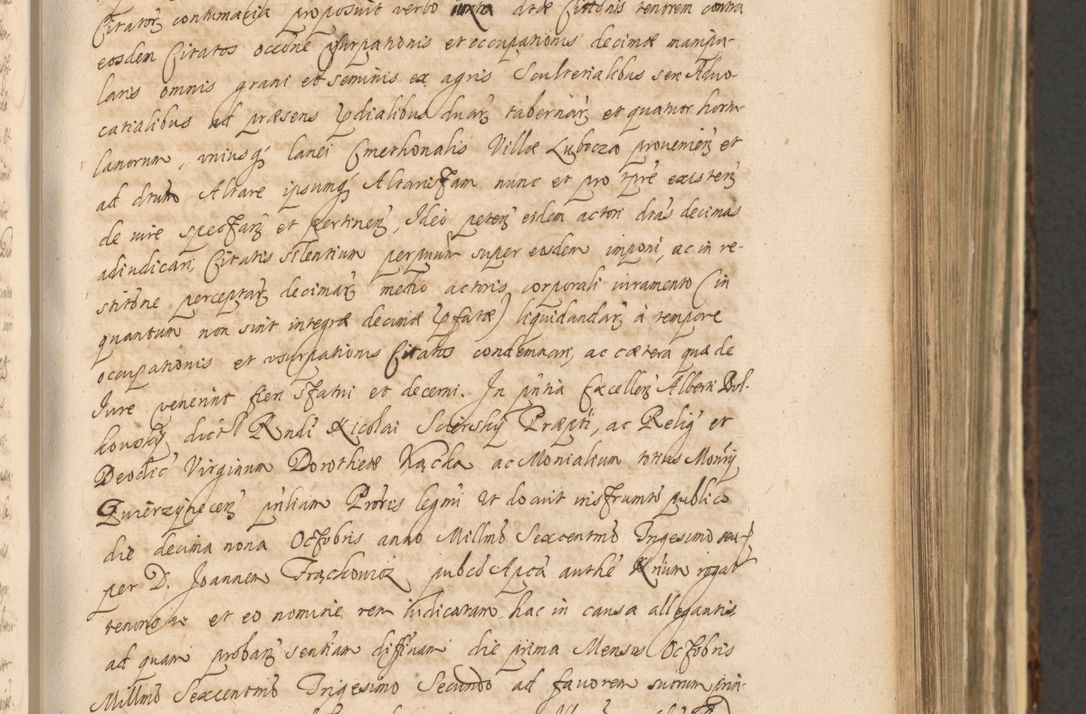 Citator contumacia proposuit verbo iuxta dictae Cittonis tenorem contra
eosdem Citatos occone usurpationis et occupationis decimae manipu-
laris omnis grani et seminis ex agris Scultetialibus seu Advo-
catialibus ad praesens praedialibus duar tabernar et quatuor hortu-
lanorum, uniusq lanei Cmethonalis Villae Lubocza provenien et
ad dictum Altare ipsumq Altaristam nunc et pro tpre existen
de iure spectan et pertinen, Ideo peten eidem actori dras decimas
adiudicari, Citatis silentium perpuum super easdem imponi, ac in re-
stitone perceptar decimar medio actoris corporali iuramento (in
quantum non sint integrae decimae pfatae) liquidandar à tempore
occupationis et usurpationis Citatos condemnari, ac caetera quae de
Iure venerint fieri statui et decerni. In pntia Excellen Alberti Bol-
kowsky dicti Rndi Nicolai Sciersky Praepti, ac Relig et
Deodic Virginum Dorotheae Kącka ac Monialium totius Monrÿ
Zwierzynecen pnliam Proris legmi ut docuit instrumto publico
die decima nona Octobris anno Millmo Sexcentmo Trigesimo
per D. Joannem Frąckowicz pubco Apca authe Nrium
tenore et eo nomine rem iudicatam hac in causa allegantis
ad quam proban sentiam diffinam die prima Mensis Octobris
Millmo Sexcentmo Trigesimo Secundo ad favorem suorum prin-